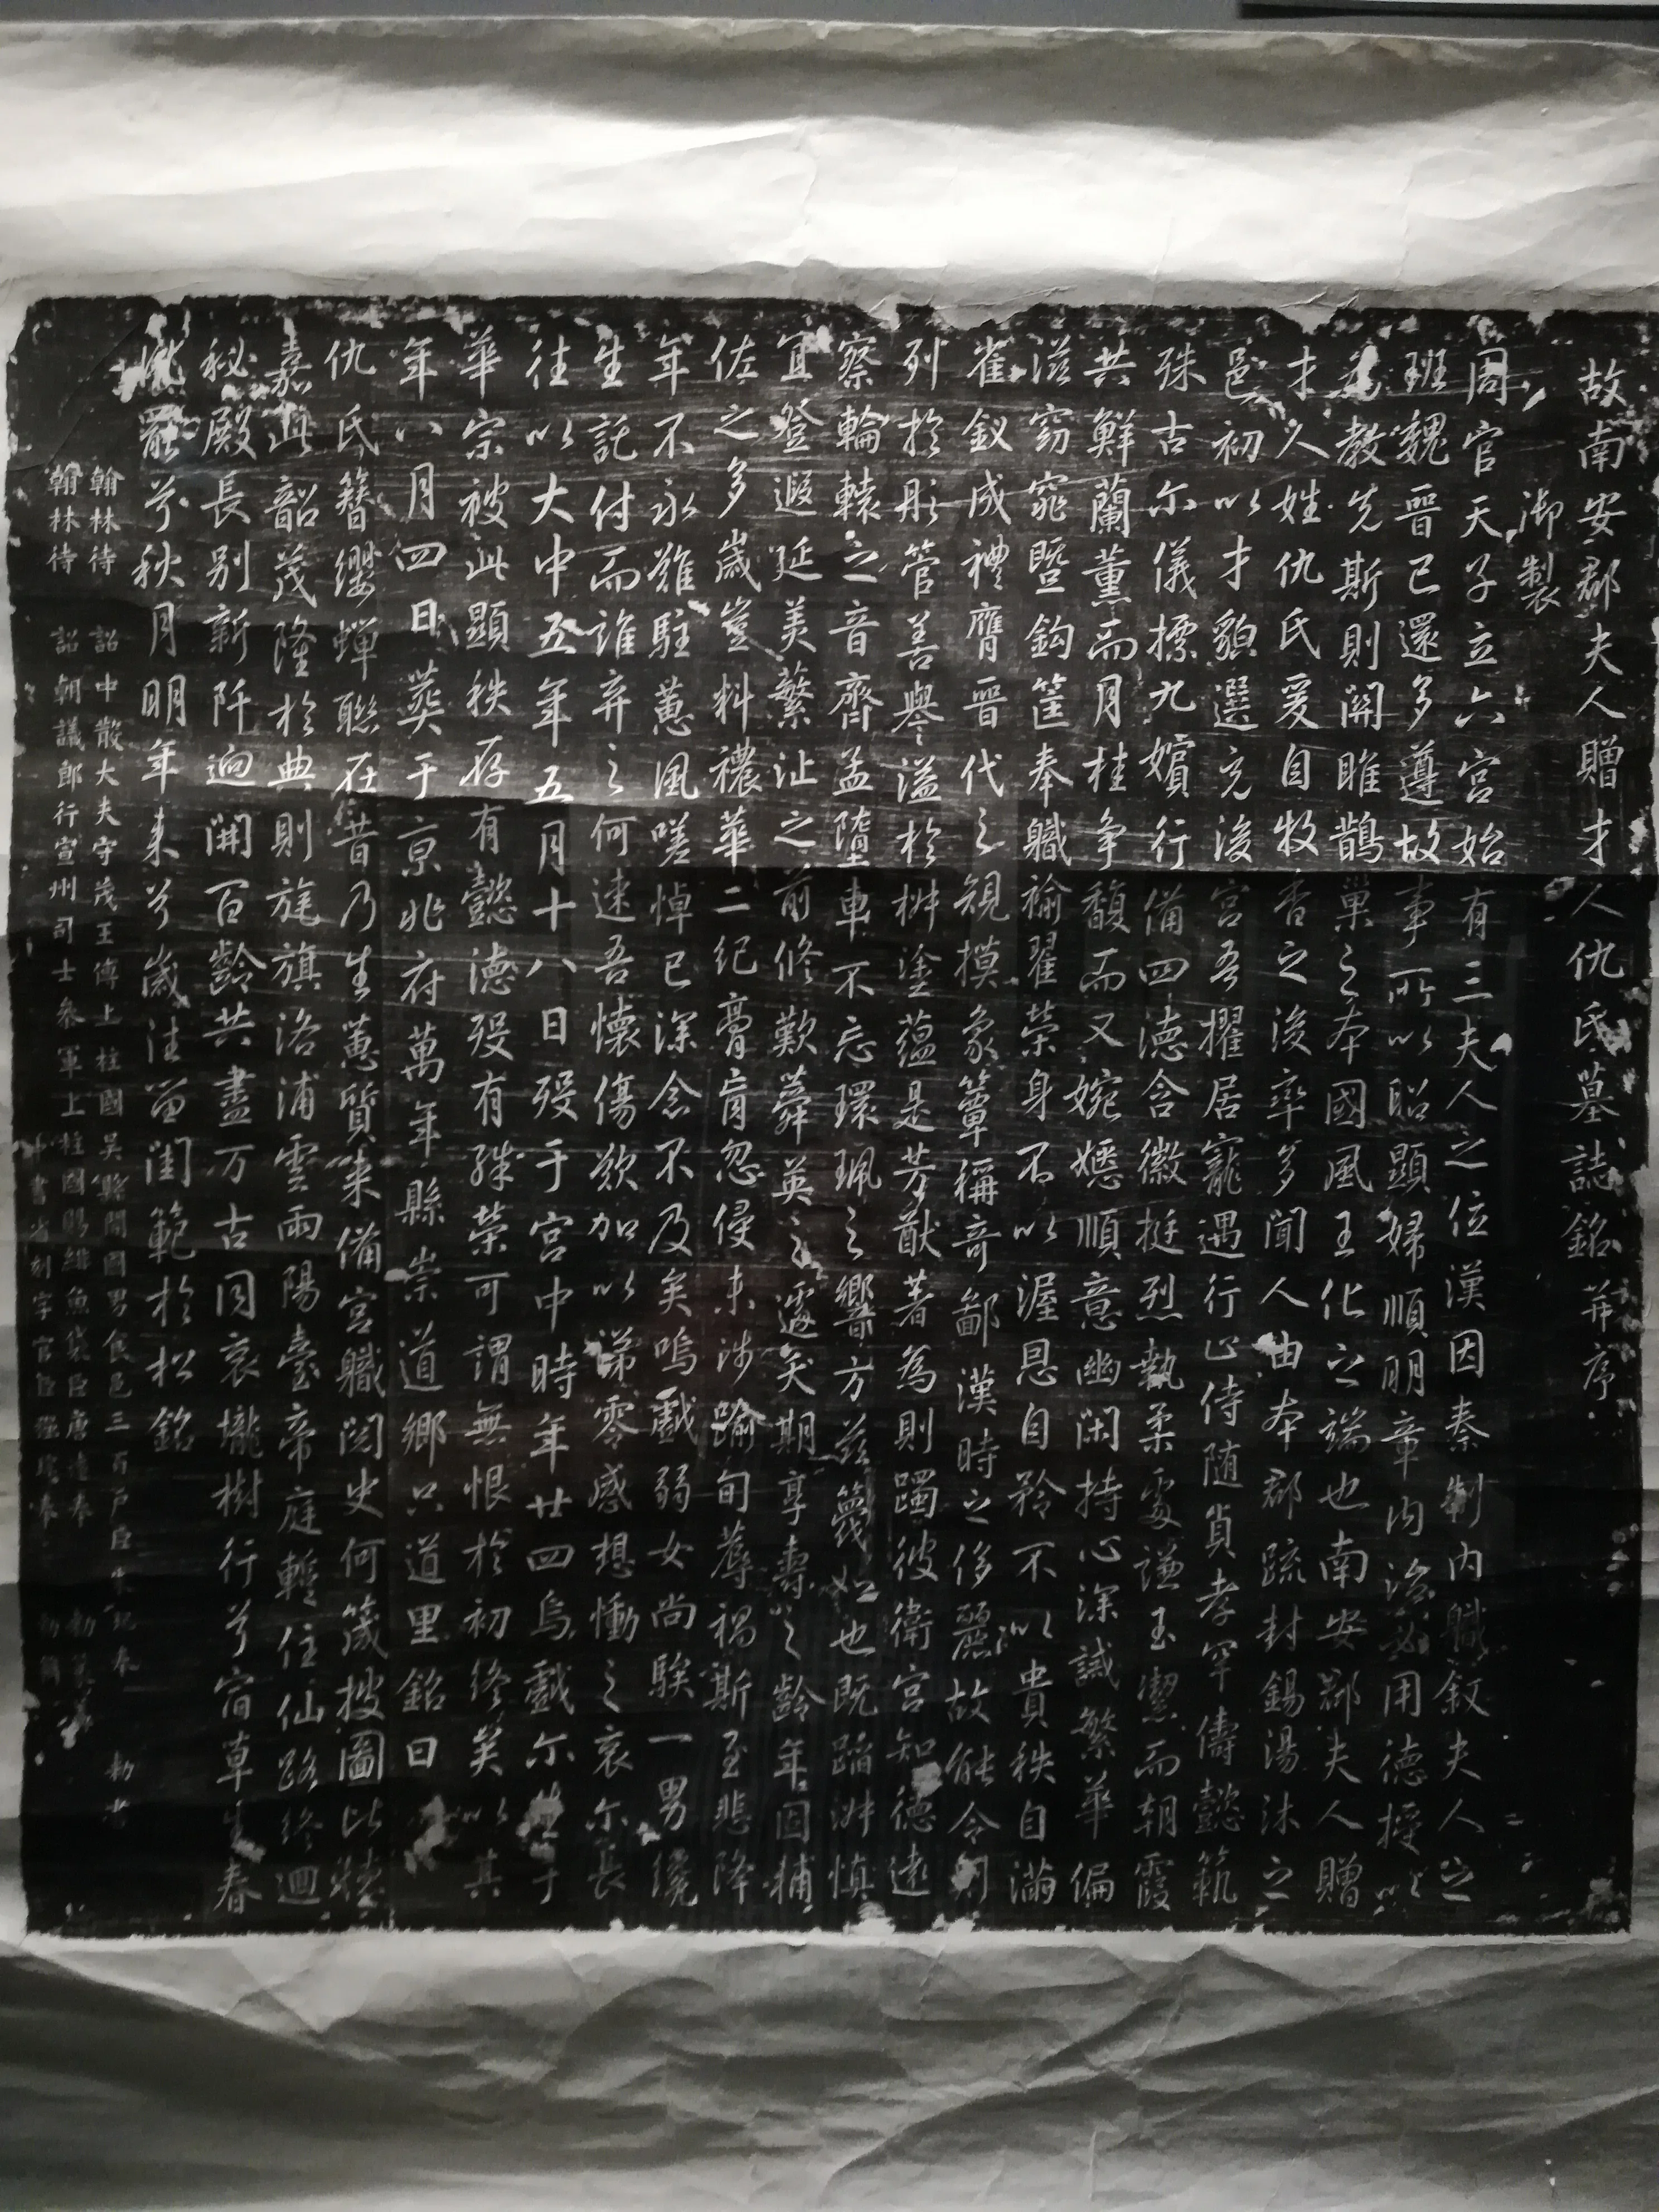 故南安郡夫人贈才人仇氏墓誌銘并序
御製
周官天子立六宮始有三夫人之位漢因秦制内職敘夫人之
班魏晉已還多遵故事所以昭顯婦順明章内治用德授以
教先斯則關雎鵲巢之本國風王化之端也南安郡夫人贈
才人姓仇氏爰自牧香之後率多聞人由本郡疏封錫湯沐之
邑初以才貌選充後宮吾擢居寵遇行止侍随貞孝罕儔懿範
殊古尓儀摽九嬪行備四德含徽挺烈執柔處謙玉潔而朝霞
共鮮蘭薰而月桂争馥而又婉嫕順意幽閑持心深誡繁華偏
滋窈窕暨鈎筐奉職褕翟榮身不以渥恩自矜不以貴秩自滿
雀釵成禮膺晉代之規摸象簟稱奇鄙漢時之侈麗故能令問
列於彤管善譽溢於椒塗蘊是芳猷著為則躅彼衛宮知德遠
察輪轅之音齊孟墮車不忘環珮之響方兹蔑如也既蹈淑慎
宜登遐延美繁沚之前修歎蕣英之遽矢期享壽之齡年固輔
佐之多歲豈料禯華二紀膏肓忽侵未涉踰旬辱禍斯至悲降
年不永難駐蕙風嗟悼已深念不及矣嗚戲弱女尚騃一男纔
生託付而誰弃之何速吾懷傷欲加以涕零感想慟之哀尓長
往以大中五年五月十八日殁于宮中時年廿四烏戲尓生于
華宗被此顯秩存有懿德殁有殊榮可謂無恨於初終矣以其
年八月四日葬于京兆府萬年縣崇道鄉只道里銘曰
仇氏簪纓蟬聯在昔乃生蕙質来備宮職閲史何箴披圖比績
嘉此韶茂隆於典則旄旗洛浦雲雨陽臺帝庭暫住仙路終迴
秘殿長别新阡迥開百齡共盡万古同哀壠樹行兮宿草生春
兮秋月明年来兮歲往留閨範於松銘
翰林待詔中散大夫守茂王傅上柱國吳縣開國男食邑三百戶臣朱玘奉勅書
翰林待詔朝議郎行宣州司士叅軍上柱國賜緋魚袋臣唐奉勅篆
中書省刻字官臣奉勅